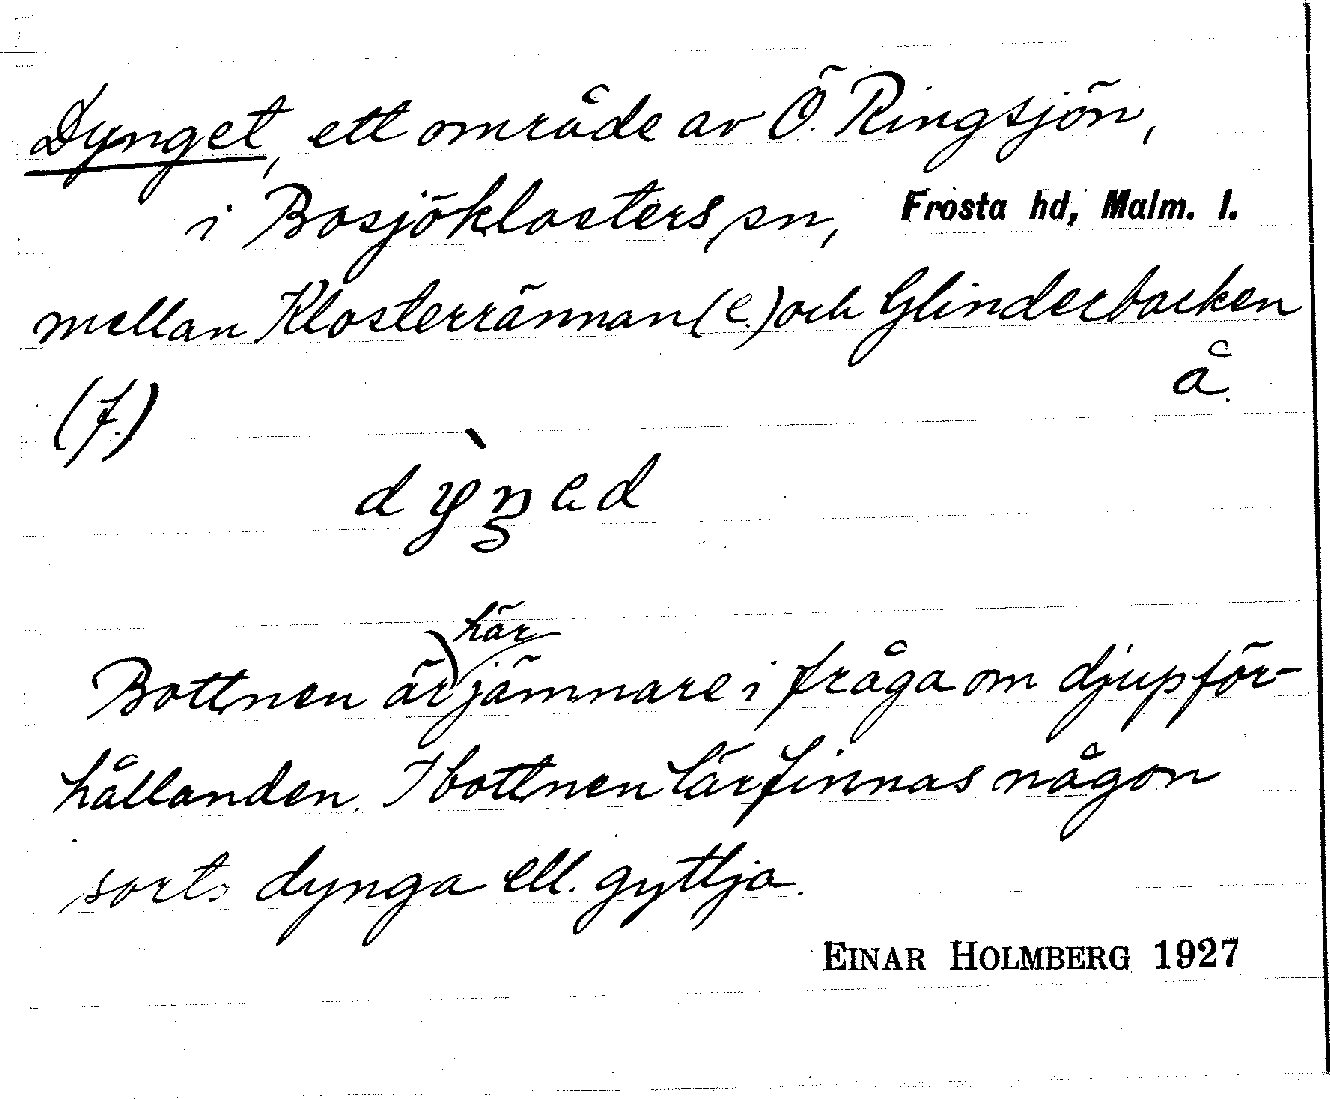 Dynget, ett område av Ö. Ringsjön,
i Bosjöklosters sn, Frosta hd, Malm. l.
mellan Klosterrännan (e.) och Glinderbacken
(f.) å.
dỳŋed
Bottnen är här jämnare i fråga om djupför-
hållanden. I bottnen lär finnas någon
sorts dynga ell. gyttja.
EINAR HOLMBERG 1927